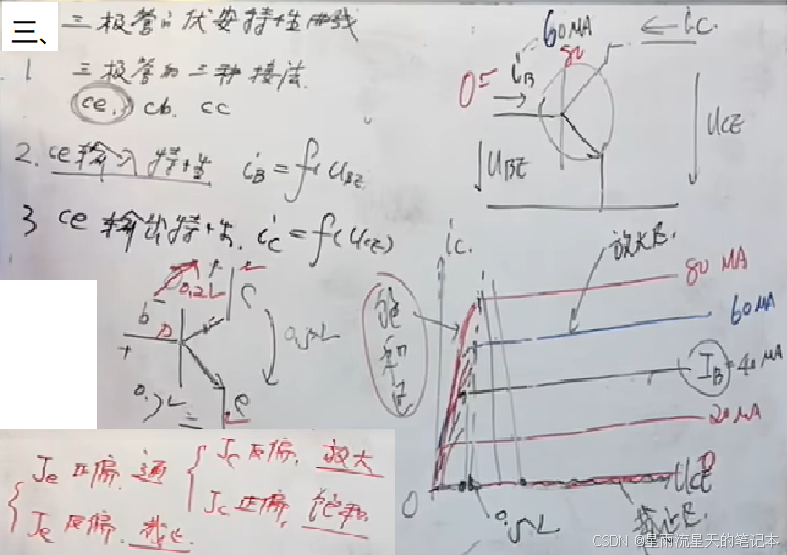 三、三极管的伏安特性曲线
1 三极管的三种接法
ce. cb. cc
2. ce输入特性 iB=f(UBE
3 ce 输出特性. iC=f(UCE)
60MA
80
iB
iC.
UBE
UCE
iC.
放大区.
80 MA
60MA
饱和区
IB=40MA
20MA
UCE
0
截止区.
b
c
e
+
Je 正偏. 通
Jc 反偏. 放大
Jc 正偏. 饱和.
Je 反偏. 截止.
CSDN @星雨流星天的笔记本